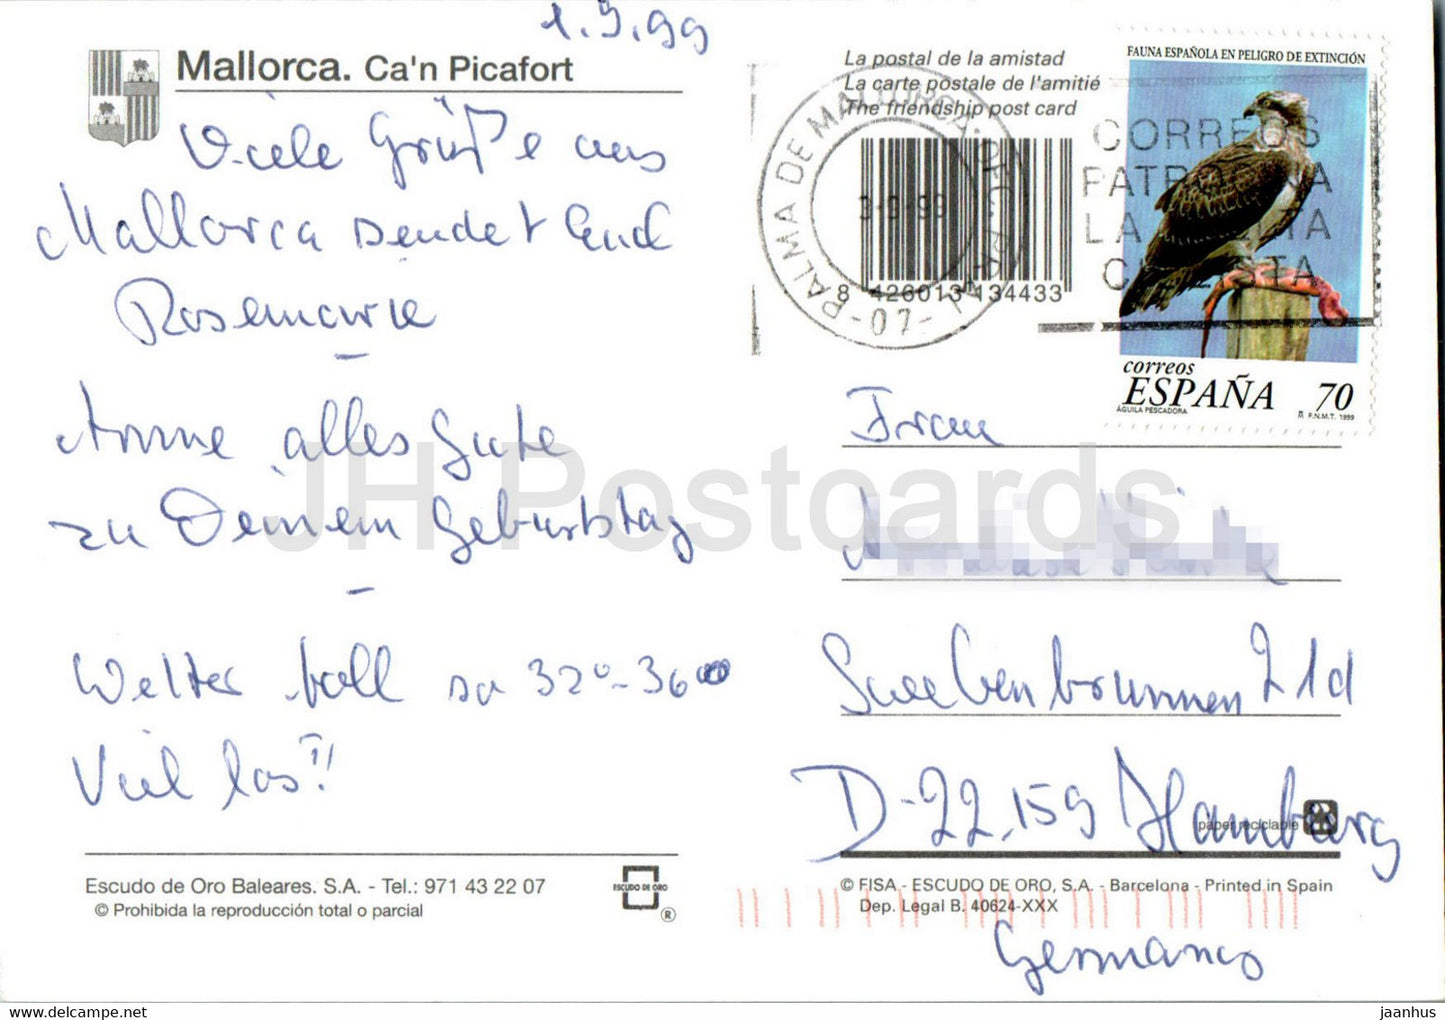 1.9.99
Mallorca. Ca'n Picafort
Viele Grüße aus
Mallorca sendet Euch
Rosemarie
–
Anne alles Gute
zu Deinem Geburtstag
–
Wetter toll so 32°-36°
Viel los!!
Escudo de Oro Baleares. S.A. - Tel.: 971 43 22 07
© Prohibida la reproducción total o parcial
ESCUDO DE ORO
®
La postal de la amistad
La carte postale de l'amitié
The friendship post card
8 426013 134433
PALMA DE MALLORCA
-07-
3-9-99
CORREOS
LA
FAUNA ESPAÑOLA EN PELIGRO DE EXTINCIÓN
correos
ESPAÑA 70
ÁGUILA PESCADORA F.N.M.T. 1999
Frau
21d
D-22.159 Hamburg
papel reciclable
© FISA - ESCUDO DE ORO, S.A. - Barcelona - Printed in Spain
Dep. Legal B. 40624-XXX
Germany
JH Postcards
www.delcampe.net
jaanhus